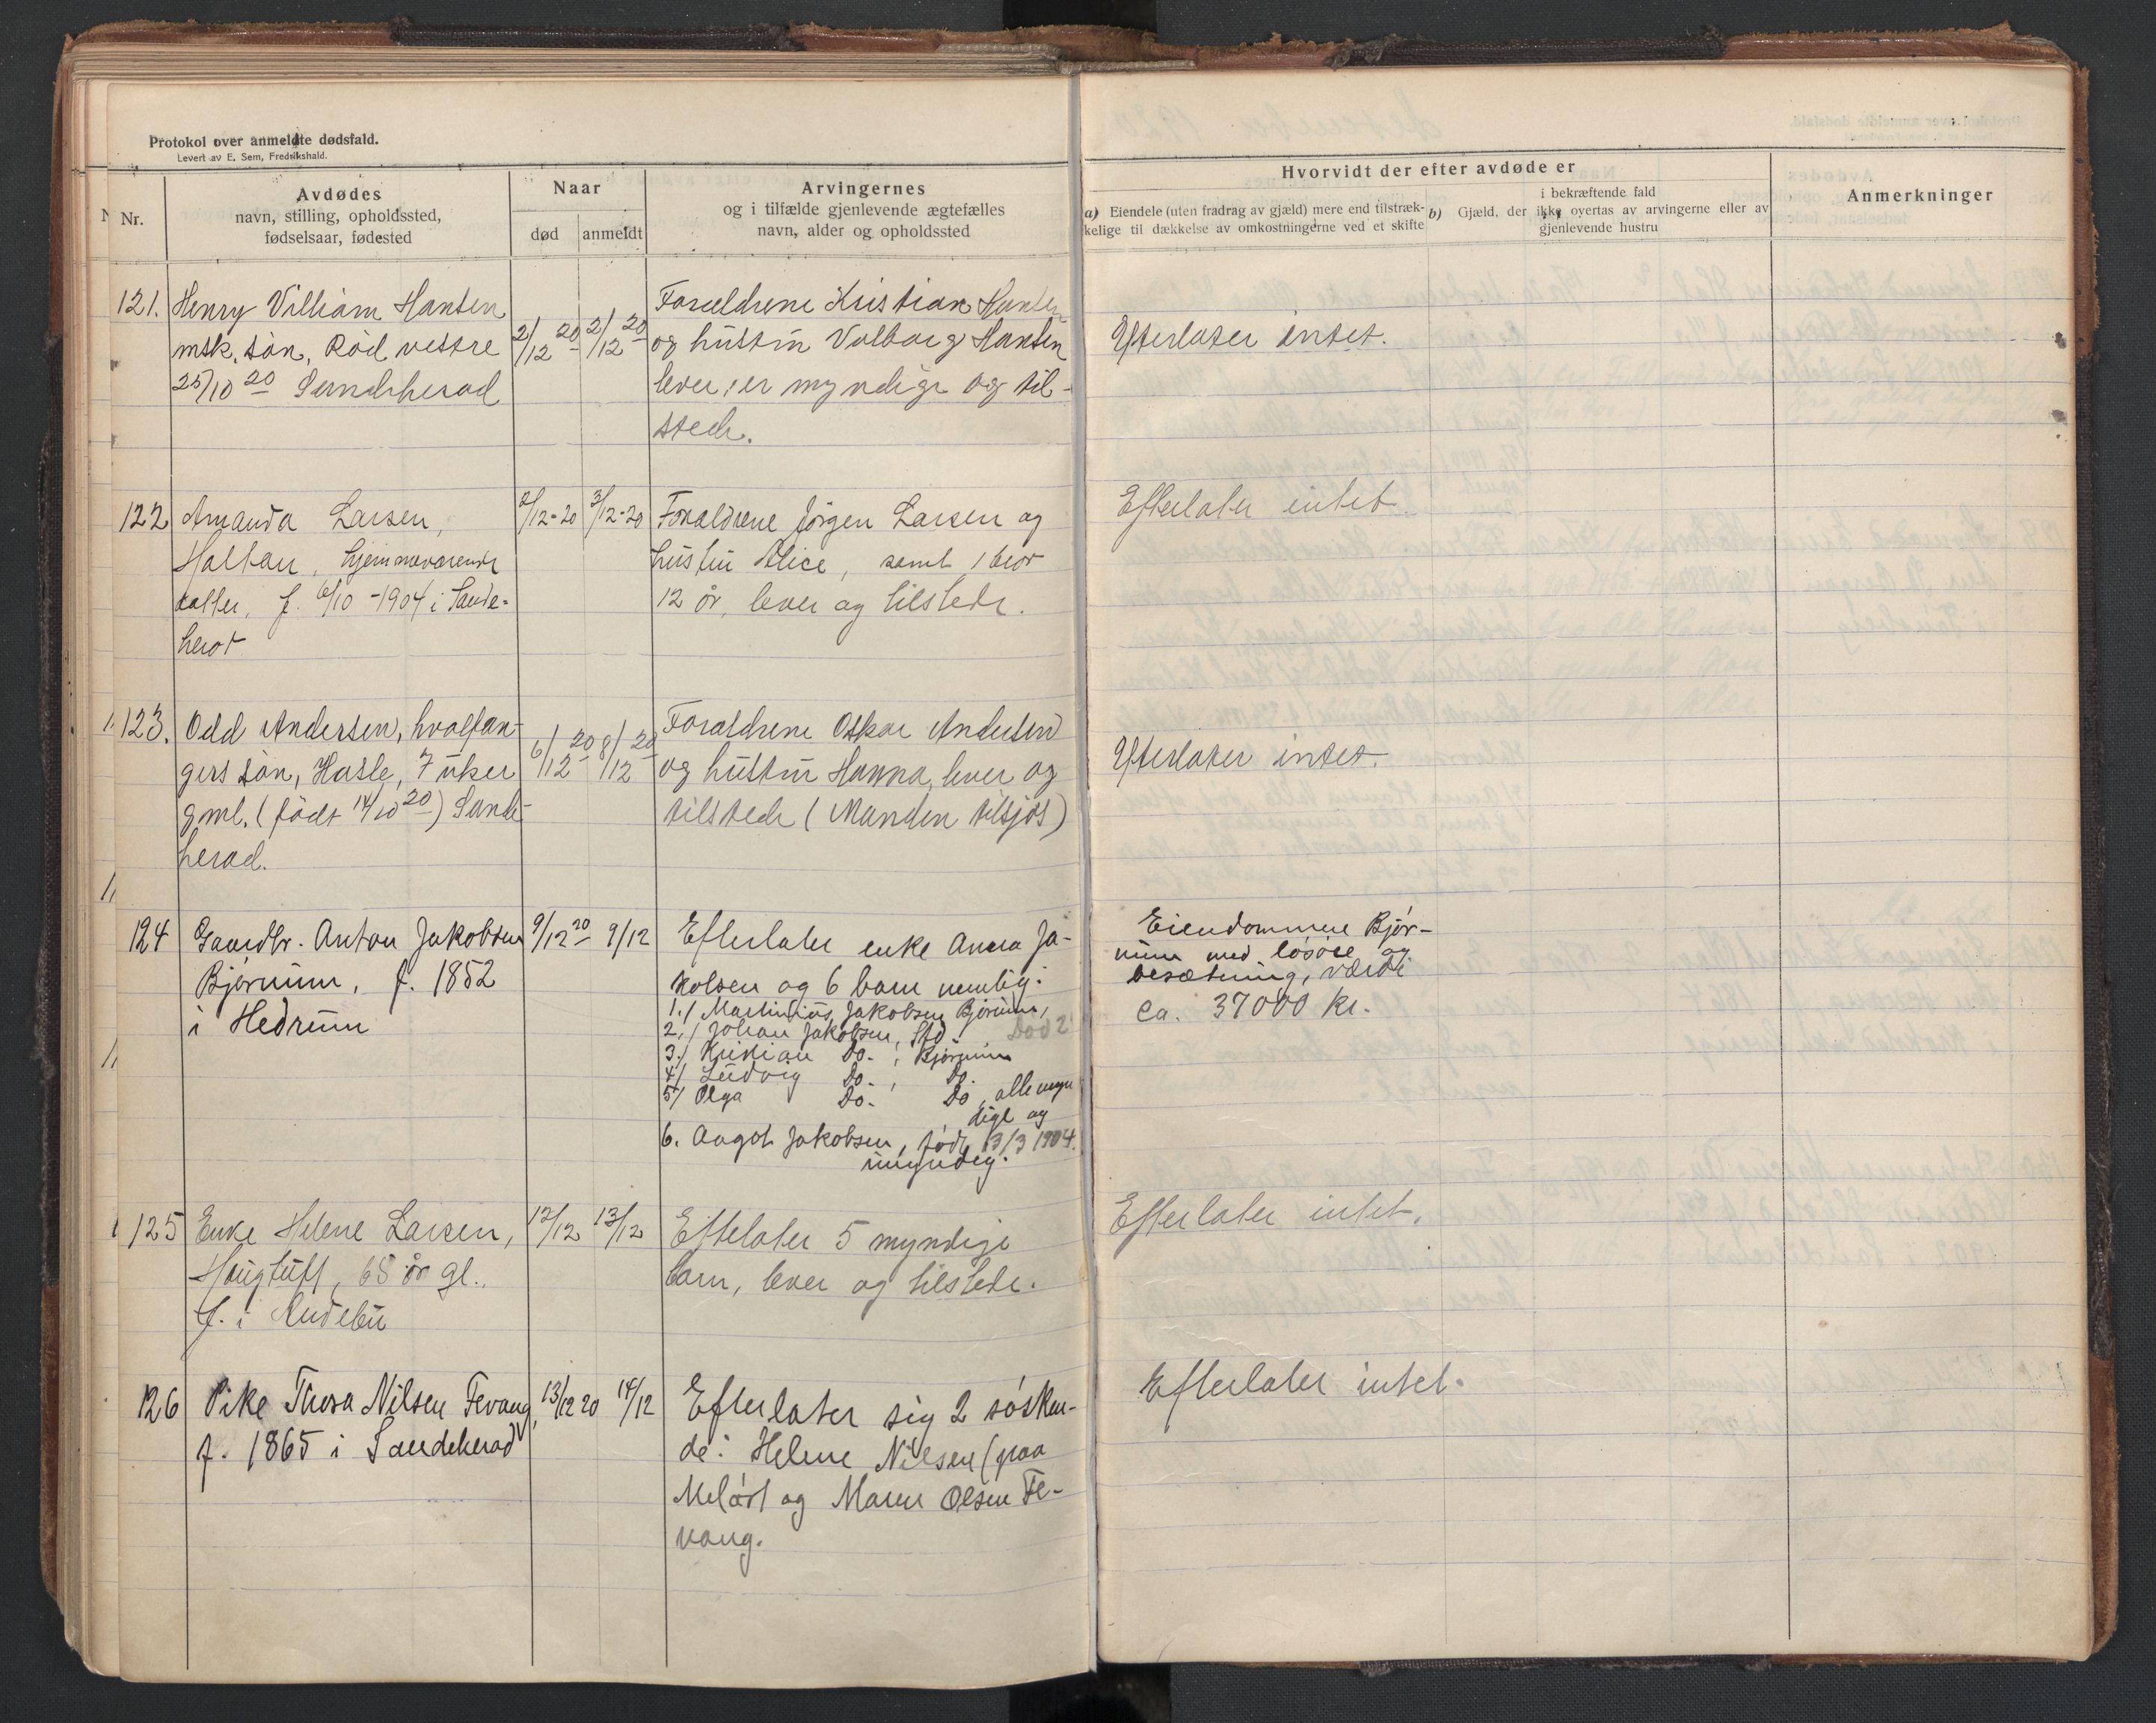 Protokol over anmeldte dødsfald.
Levert av E. Sem, Fredrikshald.
Nr.
Avdødes
navn, stilling, opholdssted,
fødselsaar, fødested
Naar
død
anmeldt
Arvingernes
og i tilfælde gjenlevende ægtefælles
navn, alder og opholdssted
Hvorvidt der efter avdøde er
a) Eiendele (uten fradrag av gjæld) mere end tilstræk-
kelige til dækkelse av omkostningerne ved et skifte
i bekræftende fald
b) Gjæld, der ikke overtas av arvingerne eller av
gjenlevende hustru
Anmerkninger
121. Henry Villiam Hansen
msk. søn, Rød vestre
25/10 20 Sandeherad
2/12 20
2/12 20
Forældrene Kristian Hansen
og hustru Valborg Hansen
lever, er myndige og til-
stede.
Efterlater intet.
122 Amanda Larsen,
Haltan, hjemmeværende
datter, f. 6/10 - 1904 i Sande-
herot
2/12-20
3/12-20
Forældrene Jørgen Larsen og
hustru Alice, samt 1 bror
12 år, lever og tilstede.
Efterlater intet
123. Odd Andersen, hvalfan-
gers søn, Hasle, 7 uker
gml. (født 14/10 20) Sande-
herad.
6/12 20
8/12 20
Forældrene Oskar Andersen
og hustru Hanna, lever og
tilstede (Manden tilsjøs)
Efterlater intet.
124 Gaardbr. Anton Jakobsen
Bjørnum, f. 1852
i Hedrum
9/12 20
9/12
Efterlater enke Anna Ja-
kobsen og 6 barn nemlig:
1./ Martinius Jakobsen Bjørnum,
2./ Johan Jakobsen, Std.
3./ Kristian Do. , Bjørnum
4/ Ludvig Do. , Do.
5/ Olga Do. Do, alle myn
dige og
6. Aagot Jakobsen, født 13/3 1904.
umyndig.
Eiendommen Bjør-
num med løsøre og
besætning, værdi
ca. 37000 kr.
125 Enke Helene Larsen,
Haugtuft, 68 år gl.
f. i Andebu
12/12
13/12
Efterlater 5 myndige
barn, lever og tilstede.
Efterlater intet.
126 Pike Thora Nilsen Fevang,
f. 1865 i Sandeherad
13/12 20
14/12
Efterlater sig 2 søsken-
de: Helene Nilsen (paa
og Maren Olsen Fe-
vang.
Efterlater intet.